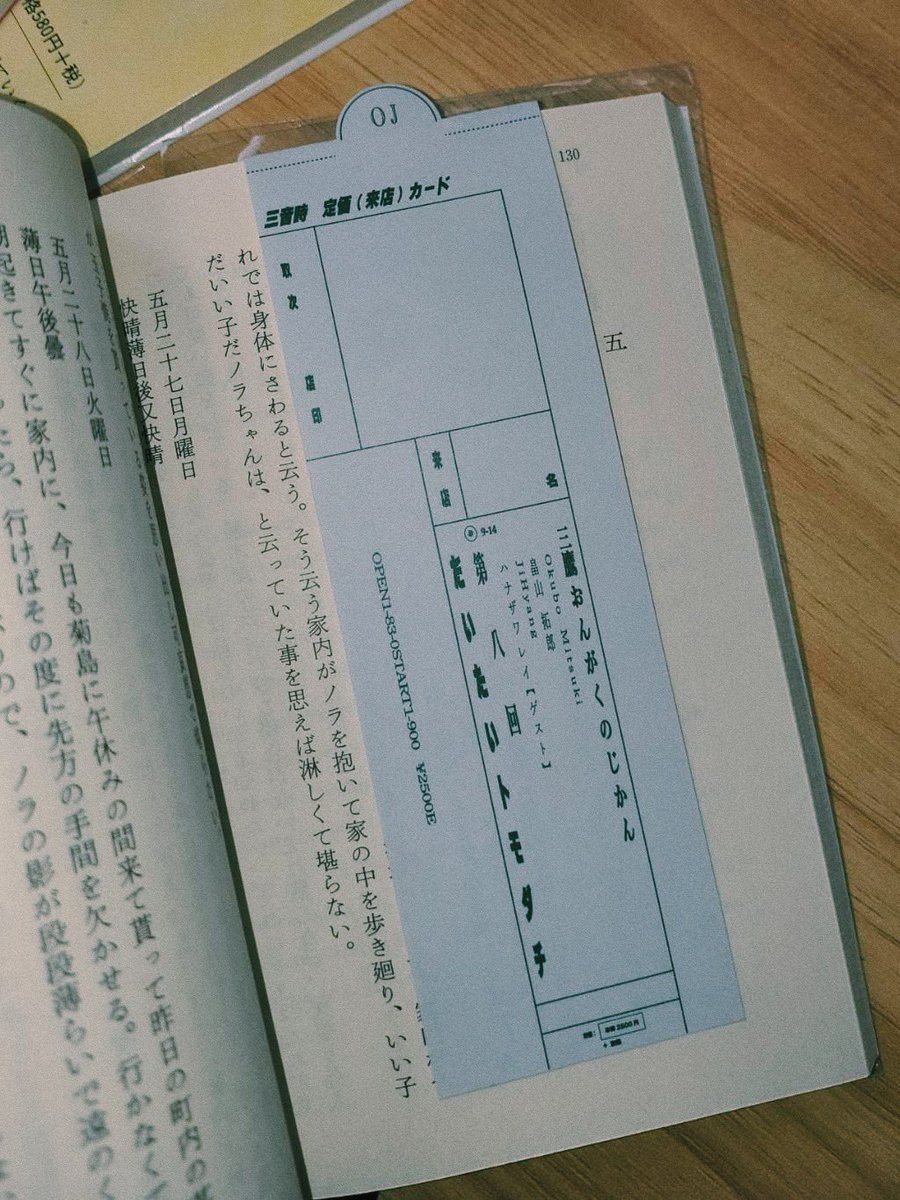 格580円＋税)
130
五
OJ
三音時 定価（来店）カード
取次 店印
来店
名
9-14
三鷹おんがくのじかん
Okubo Mitsuki
畠山 拓郎
JiHyang
ハナザワ レイ【ゲスト】
第八回
だいたいトモダチ
OPEN1-83-0START1-900 ¥2500E
2500円
れでは身体にさわると云う。そう云う家内がノラを抱いて家の中を歩き廻り、いい子
だいい子だノラちゃんは、と云っていた事を思えば淋しくて堪らない。
五月二十七日月曜日
快晴薄日後又快晴
五月二十八日火曜日
薄日午後曇
朝起きてすぐに家内に、今日も菊島に午休みの間来て貰って昨日の町内の
ったら、行けばその度に先方の手間を欠かせる。行かなく
ので、ノラの影が段段薄らいで遠のく